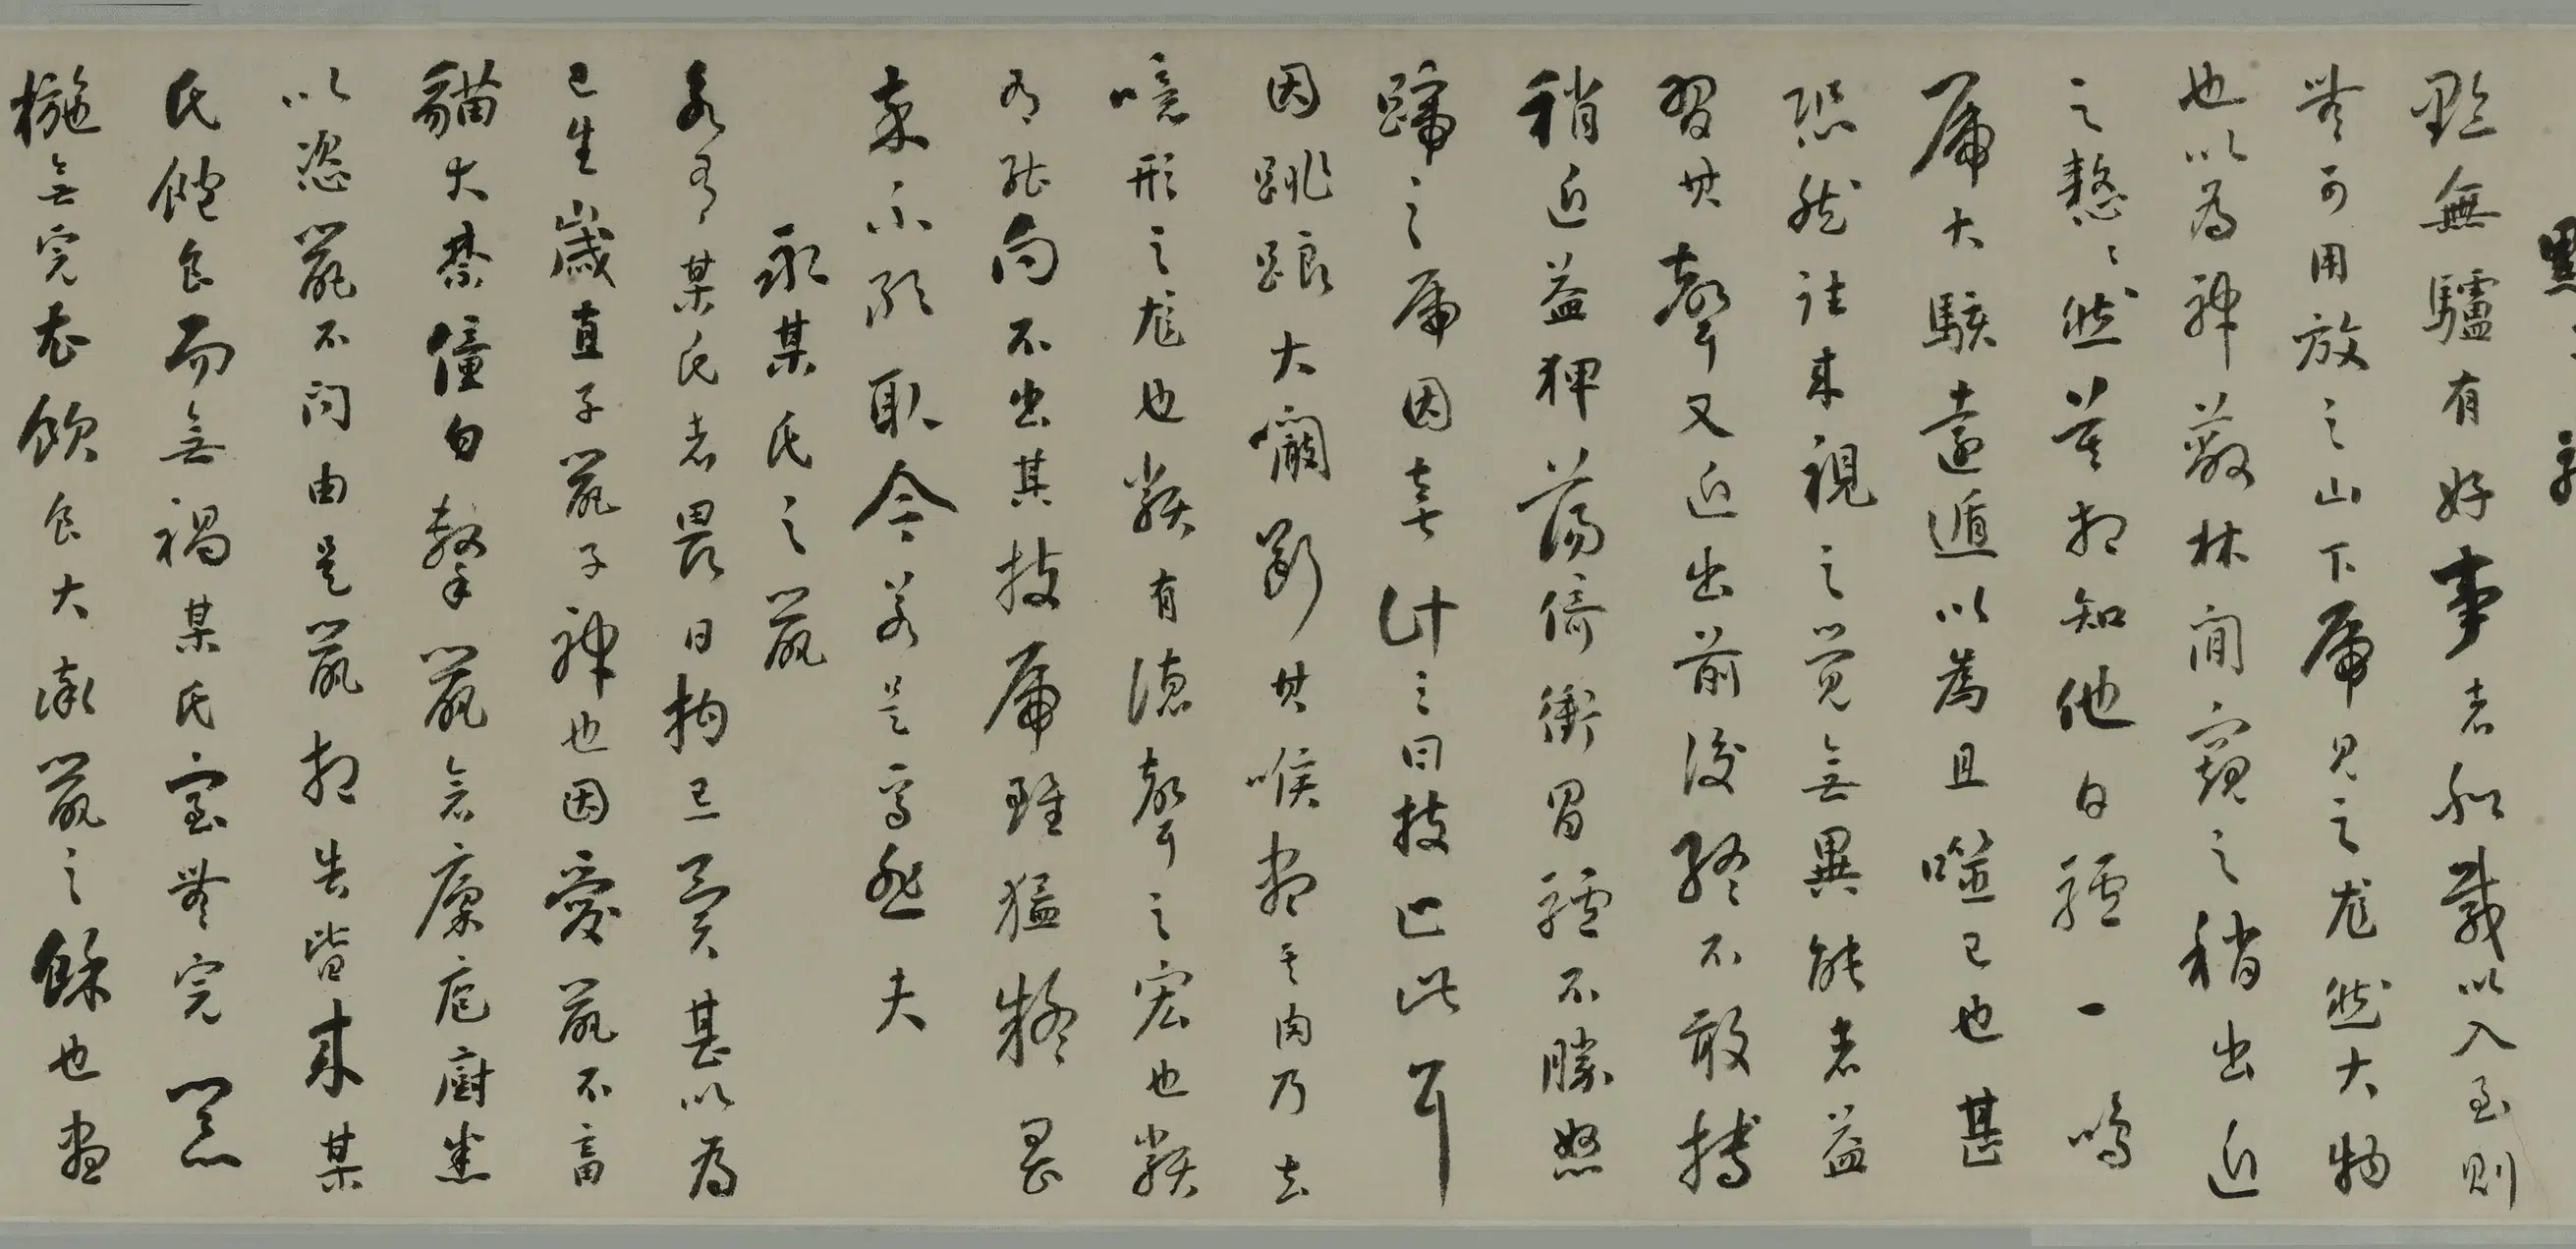 黔之驢
黔無驢有好事者船載以入至則
無可用放之山下虎見之尨然大物
也以為神蔽林間窺之稍出近
之憖憖然莫相知他日驢一鳴
虎大駭遠遁以為且噬己也甚
恐然往來視之覺無異能者益
習其聲又近出前後終不敢搏
稍近益狎蕩倚衝冒驢不勝怒
蹄之虎因喜計之曰技止此耳
因跳踉大㘚斷其喉盡其肉乃去
噫形之尨也類有德聲之宏也類
有能向不出其技虎雖猛疑畏
卒不敢取今若是焉悲夫
永某氏之鼠
永有某氏者畏日拘忌異甚以為
己生歲直子鼠子神也因愛鼠不畜
貓犬禁僮勿擊鼠倉廩庖廚悉
以恣鼠不問由是鼠相告皆來某
氏飽食而無禍某氏室無完器
椸無完衣飲食大率鼠之餘也晝